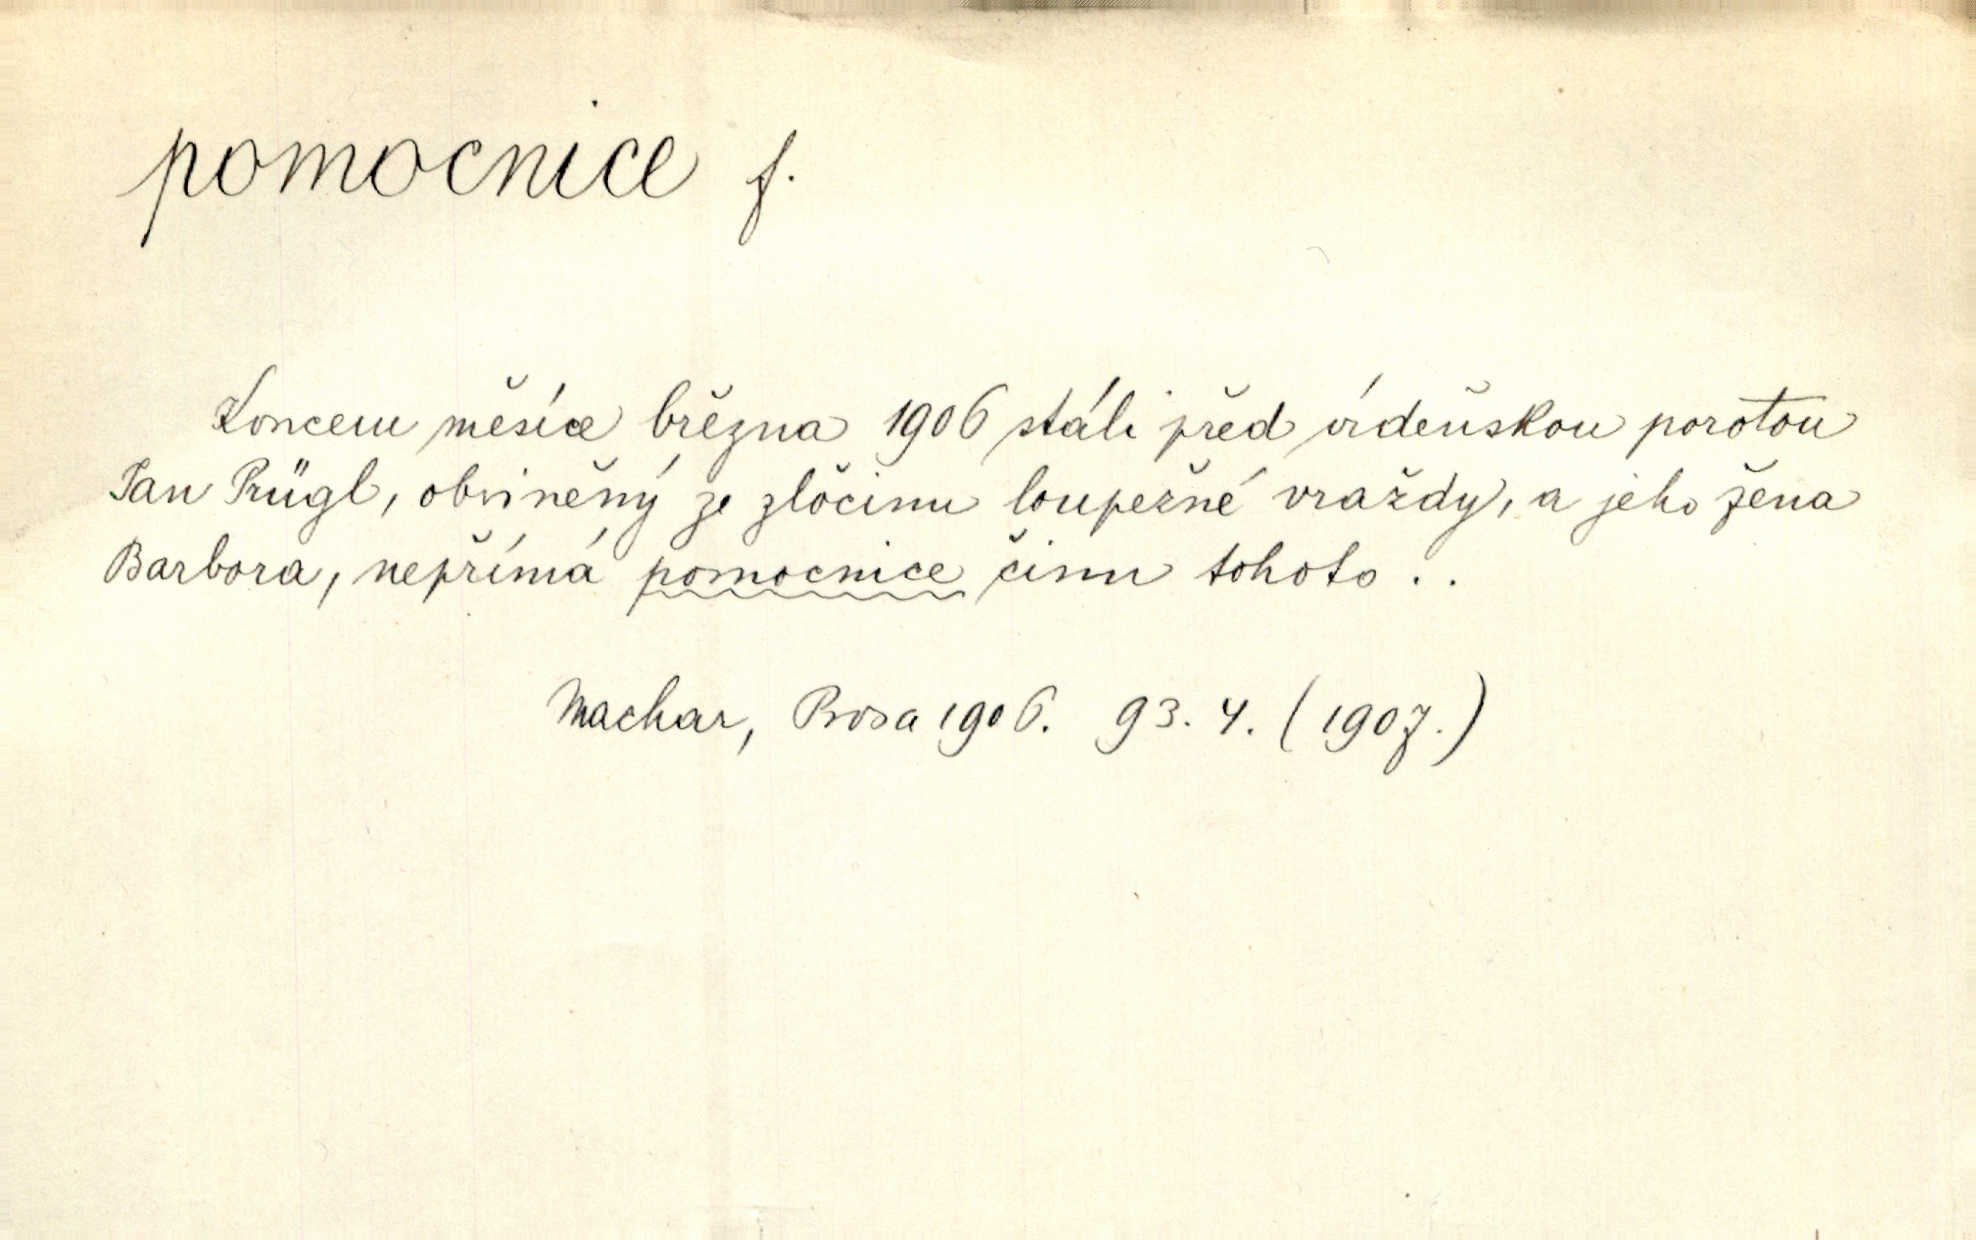 pomocnice f.
Koncem měsíce března 1906 stáli před vídeňskou porotou
Jan Prügl, obviněný ze zločinu loupežné vraždy, a jeho žena
Barbora, nepřímá pomocnice činu tohoto . .
Machar, Prosa 1906. 93. 4. (1907.)